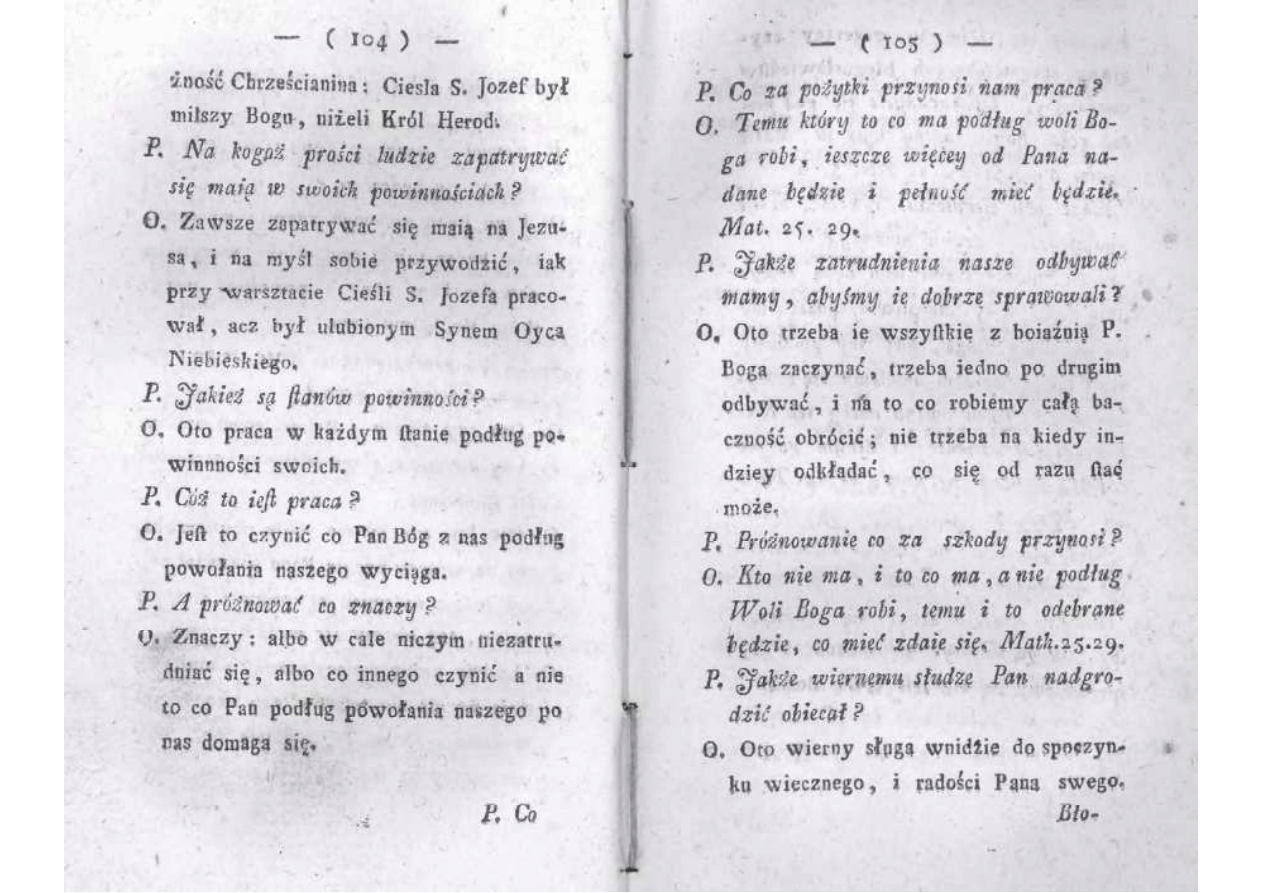 — ( 104 ) —
żność Chrześcianina: Ciesla S. Jozef był
milszy Bogu, niżeli Król Herod.
P. Na kogoż prości ludzie zapatrywać
się maią w swoich powinnościach?
O. Zawsze zapatrywać się maią na Jezu-
sa, i na myśl sobie przywodzić, iak
przy warsztacie Cieśli S. Jozefa praco-
wał, acz był ulubionym Synem Oyca
Niebieskiego.
P. Jakież są ſtanów powinności?
O. Oto praca w każdym ſtanie podług po-
winnności swoich.
P. Cóż to ieſt praca?
O. Jeſt to czynić co Pan Bóg z nas podług
powołania naszego wyciąga.
P. A próżnować co znaczy?
O. Znaczy: albo w cale niczym niezatru-
dniać się, albo co innego czynić a nie
to co Pan podług powołania naszego po
nas domaga się.
P. Co
— ( 105 ) —
P. Co za pożytki przynosi nam praca?
O. Temu który to co ma podług woli Bo-
ga robi, ieszcze więcey od Pana na-
dane będzie i pełność mieć będzie.
Mat. 25. 29.
P. Jakże zatrudnienia nasze odbywać
mamy, abyśmy ie dobrze sprawowali?
O. Oto trzeba ie wszyſtkie z boiaźnią P.
Boga zaczynać, trzeba iedno po drugim
odbywać, i na to co robiemy całą ba-
czność obrócić; nie trzeba na kiedy in-
dziey odkładać, co się od razu ſtać
może.
P. Próżnowanie co za szkody przynosi?
O. Kto nie ma, i to co ma, a nie podług
Woli Boga robi, temu i to odebrane
będzie, co mieć zdaie się. Math. 25. 29.
P. Jakże wiernemu słudze Pan nadgro-
dzić obiecał?
O. Oto wierny sługa wnidźie do spoczyn-
ku wiecznego, i radości Pana swego.
Bło-